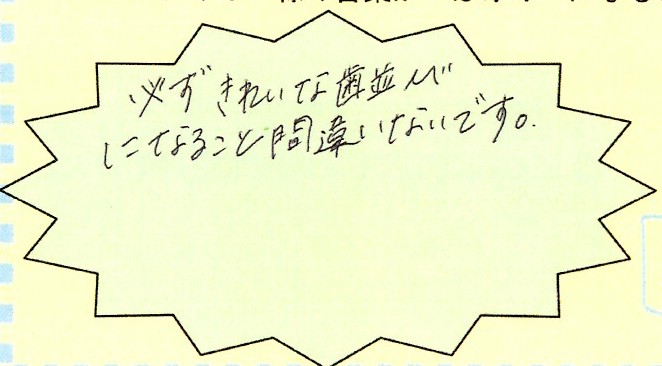 必ずきれいな歯並び
になること間違いないです。